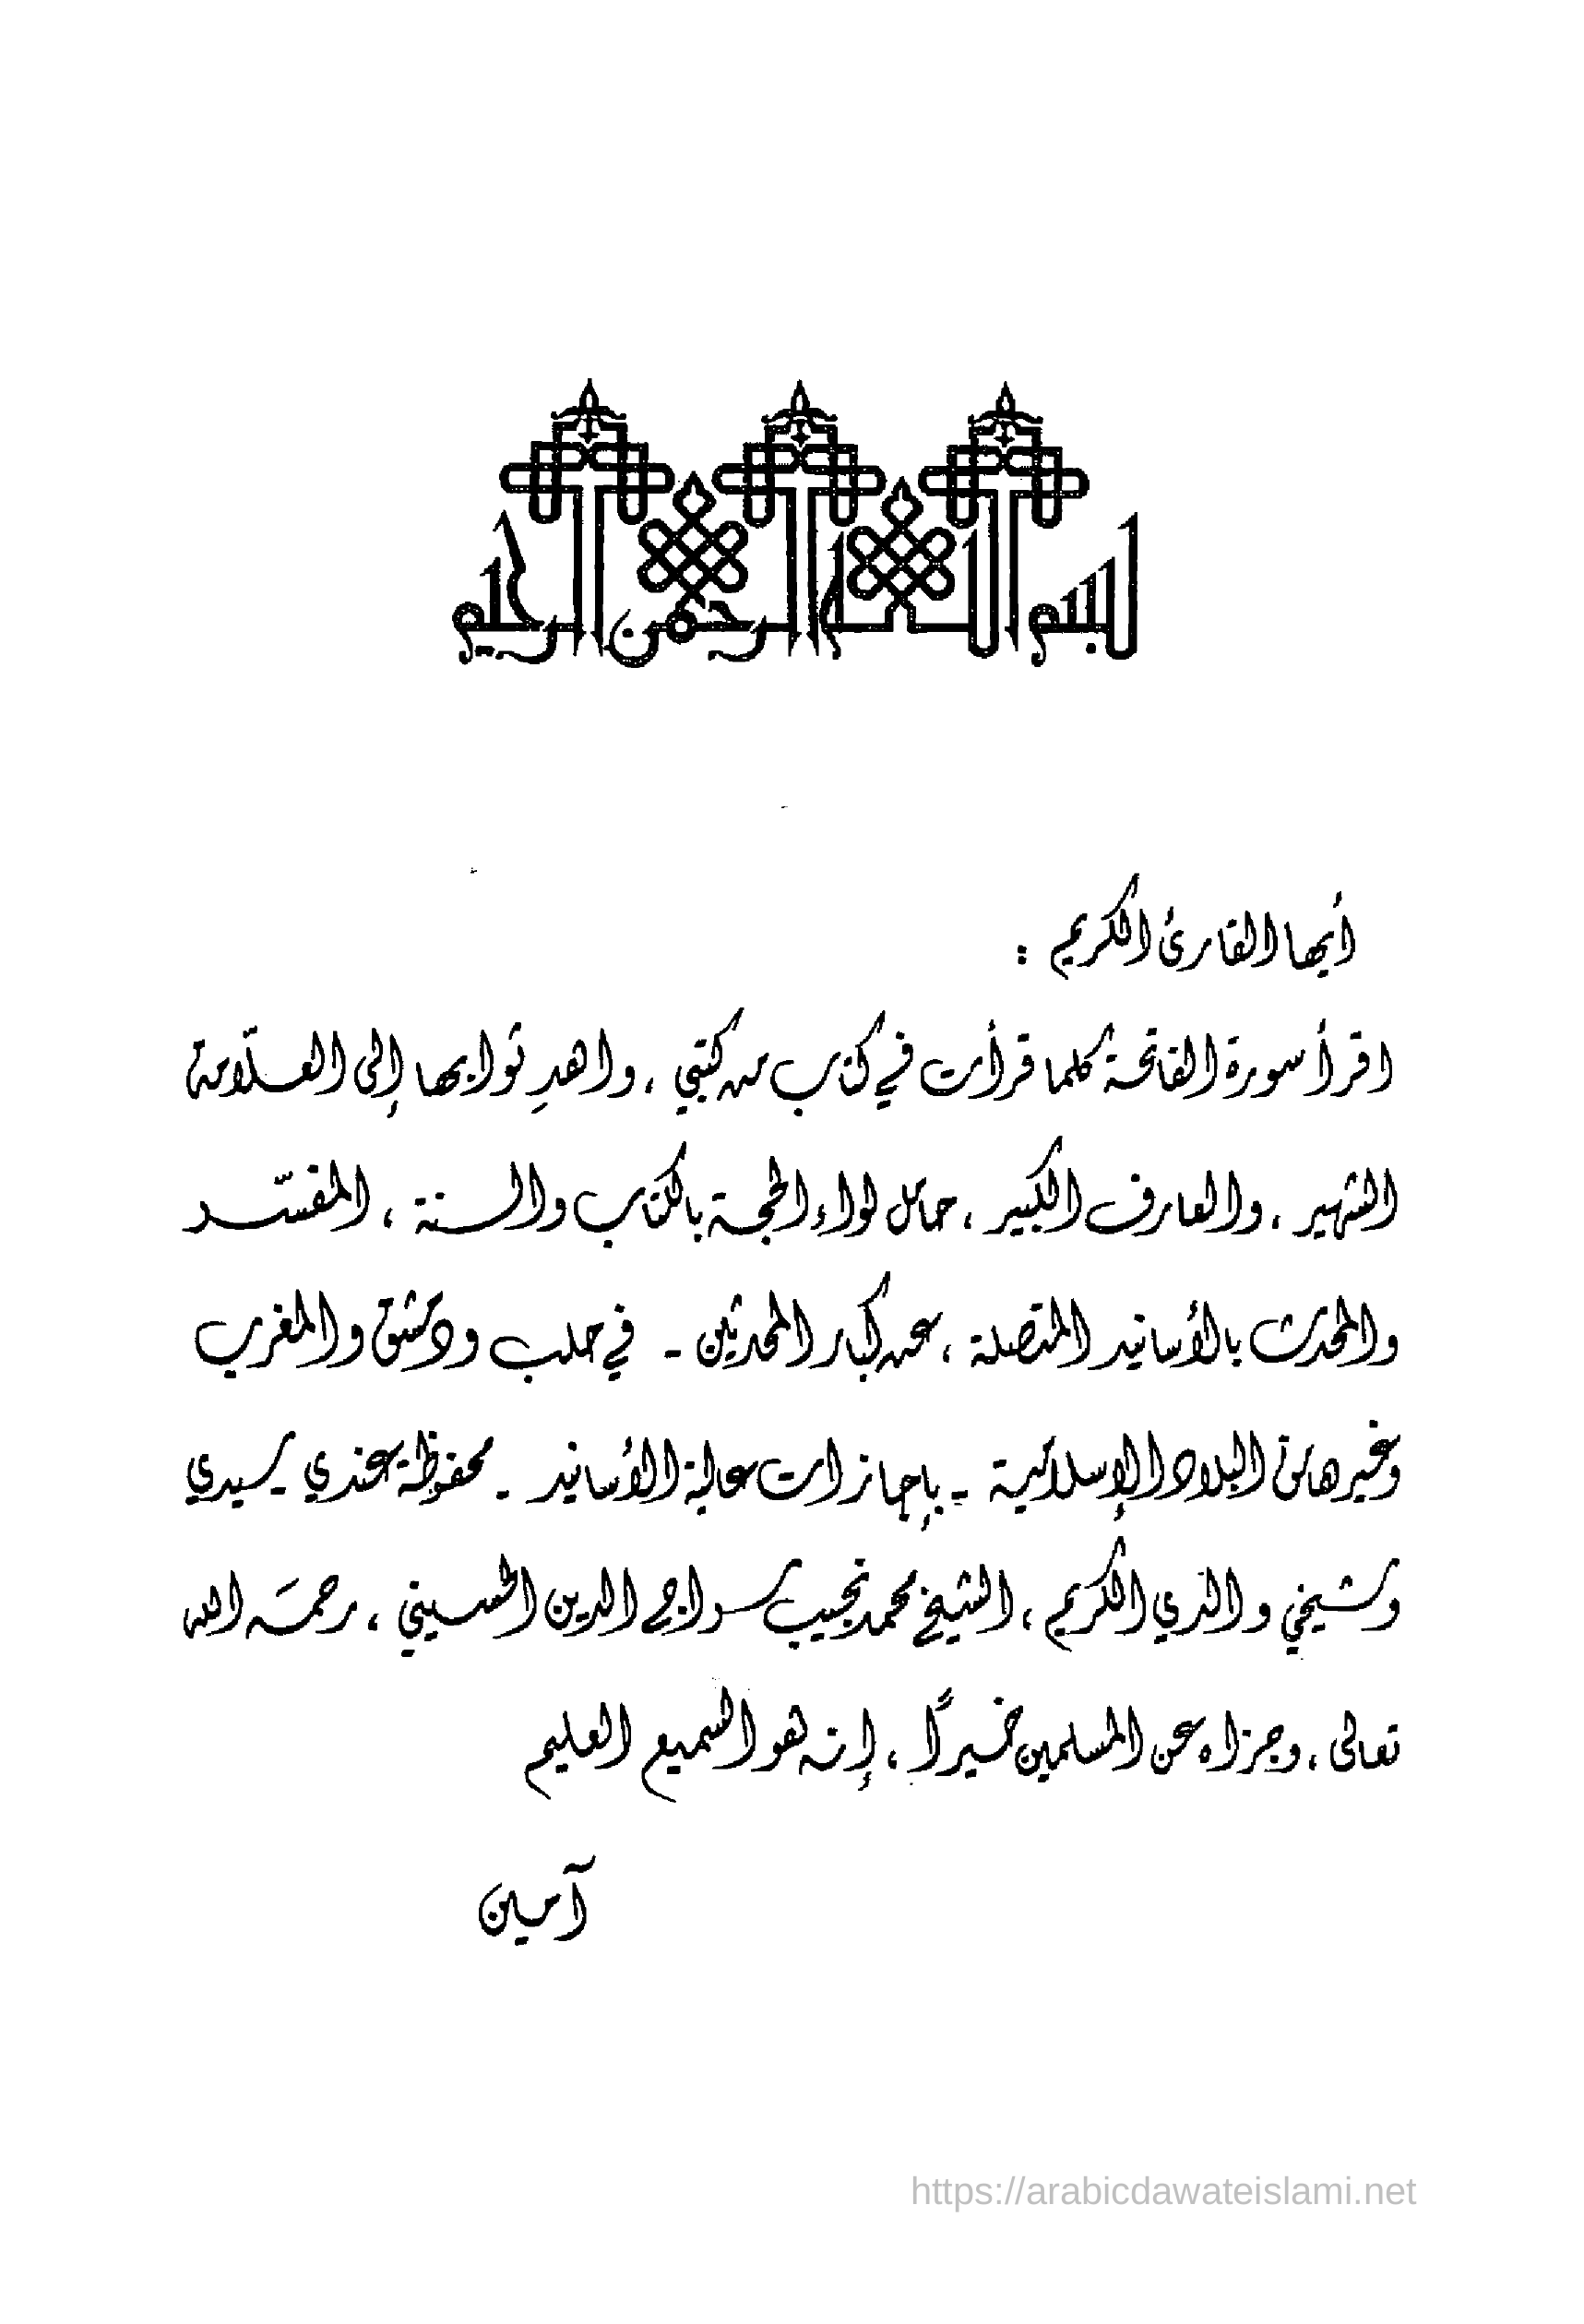 بسم الله الرحمن الرحيم
أيها القارئ الكريم :
اقرأ سورة الفاتحة كلما قرأت في كتاب من كتبي ، واهدِ ثوابها إلى العلّامة
الشهير ، والعارف الكبير ، حامل لواء الحجة بالكتاب والسنة ، المفسّر
والمحدث بالأسانيد المتصلة ، عن كبار المحدثين - في حلب ودمشق والمغرب
وغيرها من البلاد الإسلامية - بإجازات عالية الأسانيد - محفوظة عندي - سيدي
وشيخي والدي الكريم ، الشيخ محمد نجيب سراج الدين الحسيني ، رحمَه الله
تعالى ، وجزاه عن المسلمين خيراً ، إنه هو السميع العليم
آمين
https://arabicdawateislami.net